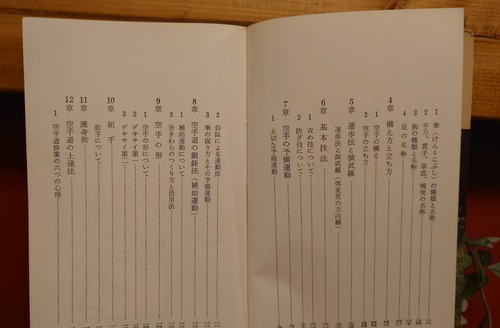 1 拳（げんこつこぶし）の種類と名称
2 手刀、貫手、掌底、猿臂の名称
3 腕の種類と名称
4 足の名称
4章 構え方と立ち方
1 空手の構え
2 空手の立ち方
5章 運歩法と演武線
運歩法と演武線（体変更の方向線）
6章 基本技法
1 攻め技について
2 防ぎ技について
7章 空手の予備運動
1 大切な予備運動
2 仰臥による運動
3 拳の握り方とその予備運動
8章 空手道の鍛錬法（補助運動）
1 補助運動について
2 巻きわらのつくり方と活用法
9章 空手の形
1 空手の形について
2 ゲキサイ第一
3 ゲキサイ第二
10章 組手
組手について
11章 護身術
12章 空手道の上達法
1 空手道修業の六つの心得